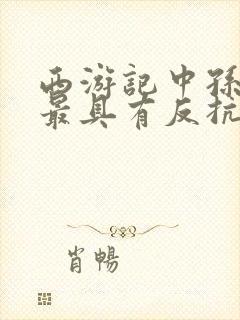 西游記中孫
最具有反抗
肖暢